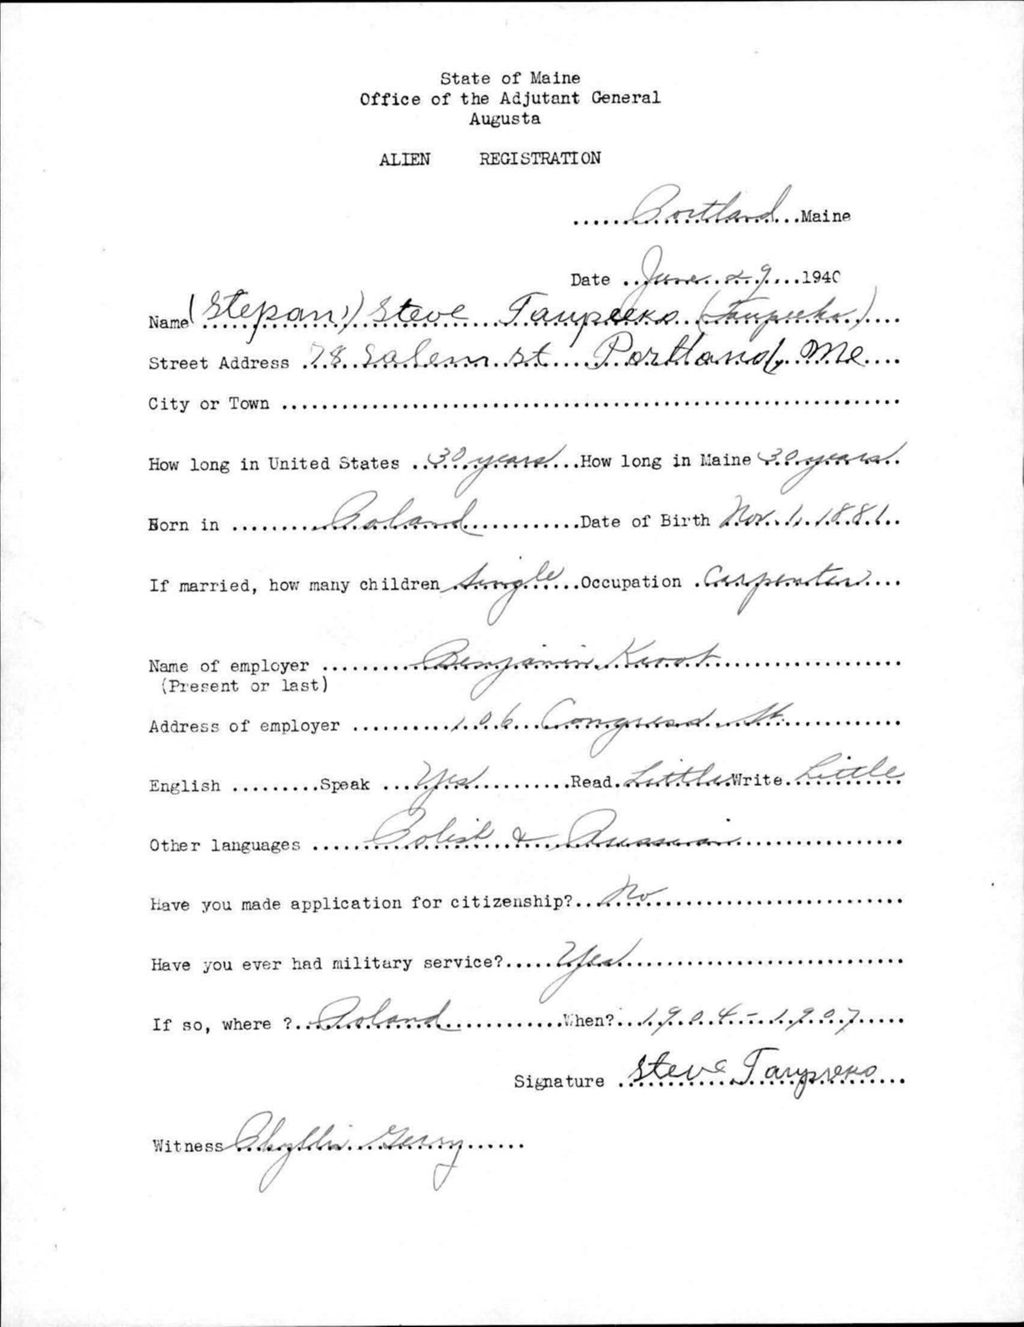 State of Maine
Office of the Adjutant General
Augusta
ALIEN REGISTRATION
Portland Maine
Date June 29 1940
Name (Stepan) Steve
Street Address 78 Salem st Portland, Me
City or Town
How long in United States 30 years How long in Maine 30 years
Born in Poland Date of Birth Nov. 1, 1881
If married, how many children Single Occupation Carpenter
Name of employer Benjamin
(Present or last)
Address of employer 106 Congress St.
English Speak Yes Read Little Write Little
Other languages Polish & Russian
Have you made application for citizenship? No
Have you ever had military service? Yes
If so, where ? Poland When? 1904-1907
Signature Steve
Witness Phyllis Gerry